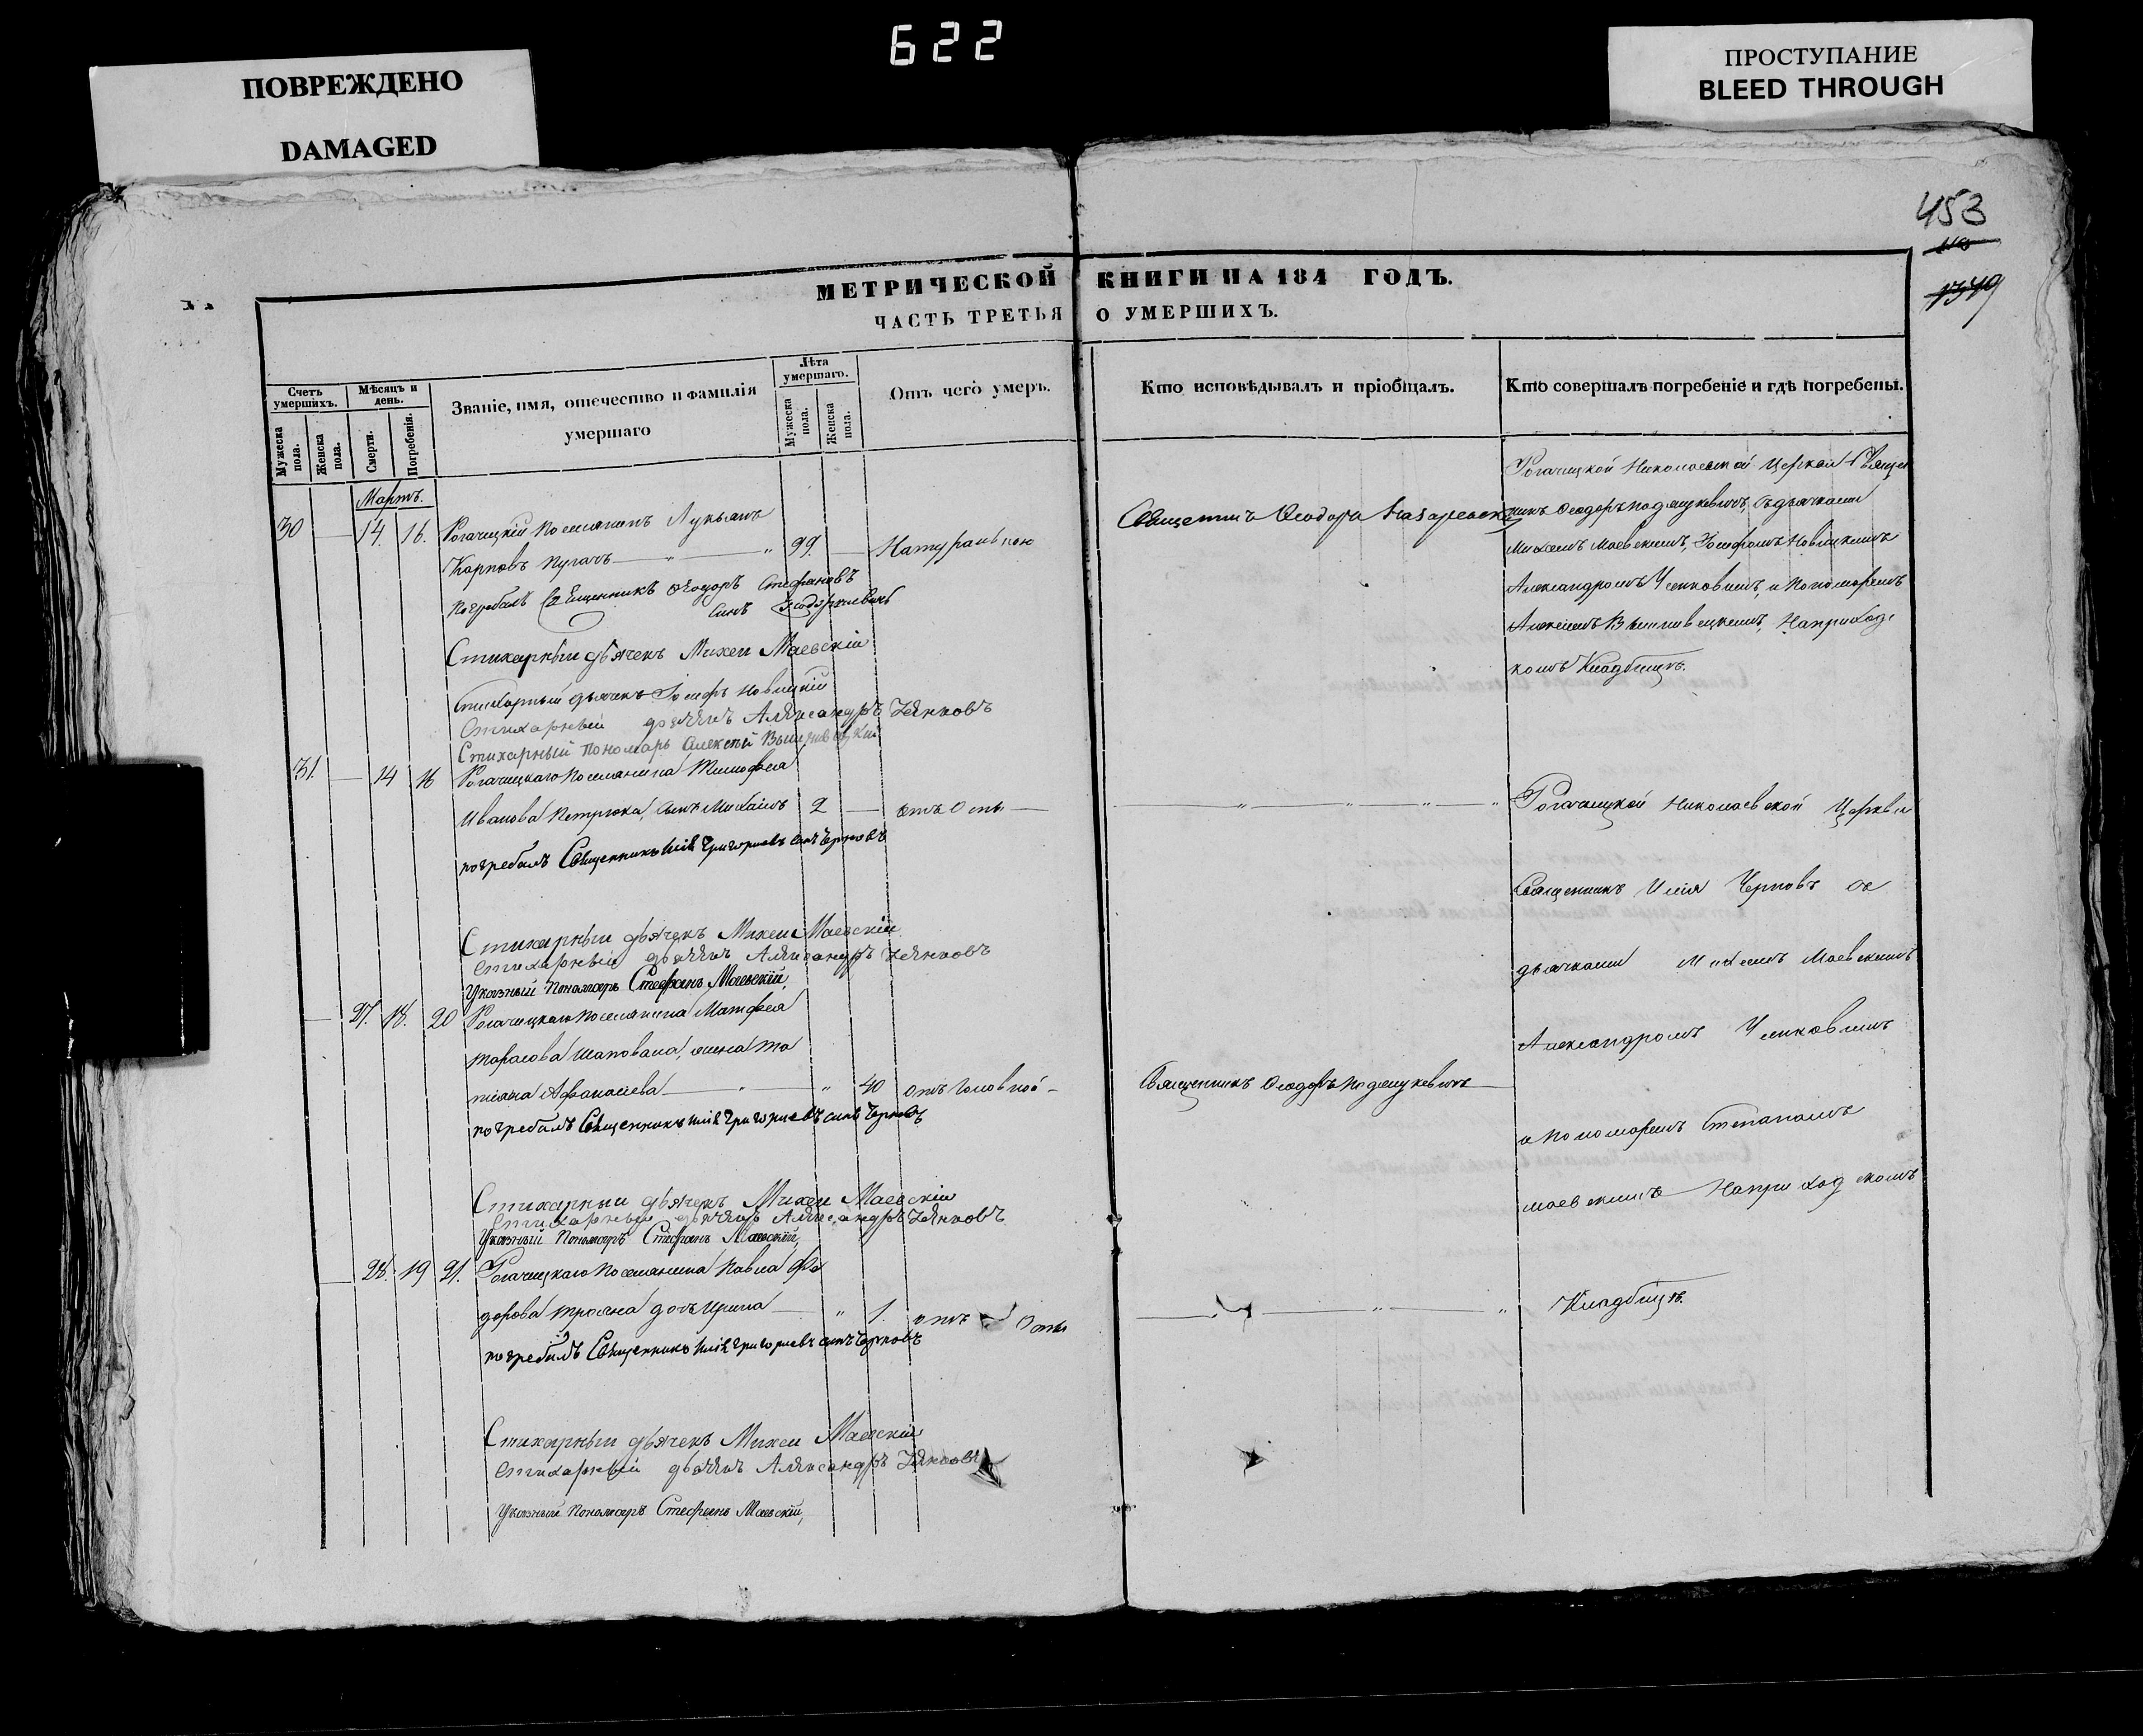 622
ПОВРЕЖДЕНО
DAMAGED
ПРОСТУПАНИЕ
BLEED THROUGH
453
1379
МЕТРИЧЕСКОЙ КНИГИ НА 184 ГОДЪ.
ЧАСТЬ ТРЕТЬЯ О УМЕРШИХЪ.
Счетъ умершихъ.
Мужеска пола.
Женска пола.
Мѣсяцъ и день.
Смерти.
Погребенія.
Званіе, имя, отечество и фамилія умершаго
Лѣта умершаго.
Мужеска пола.
Женска пола.
Отъ чего умеръ.
Кто исповѣдывалъ и пріобщалъ.
Кто совершалъ погребеніе и гдѣ погребены.
Мартъ.
30 — 14. 16. Рогачицкій поселянинъ Лукьянъ
Карповъ Пугачь — " — " 99. — Натуральною
Священникъ Ѳеодоръ
погребалъ Священникъ Ѳеодоръ Стефановъ
сынъ
Стихарный дьячекъ Михеи Маевскій
Стихарный дьячекъ Іосифъ Новицкій
Стихарный дьячекъ Александръ Ченковъ
Стихарный пономарь Алексѣй
Рогачицкой Николаевской Церкви Священ
никъ Ѳеодоръ, съ дьячками
Михеемъ Маевскимъ, Іосифомъ Новицкимъ
Александромъ Ченковымъ, и пономаремъ
Алексѣемъ, На приход
комъ Кладбищѣ.
31. — 14 16 Рогачицкаго поселянина Тимофея
Иванова Петрюка, сынъ Михаилъ 2 — отъ Оспы —
— " — " — " — "
погребалъ Священникъ Илія Григориевъ сынъ Черновъ
Стихарный дьячекъ Михеи Маевскій
Стихарный дьячекъ Александръ Ченковъ
Указный Пономарь Стефанъ Маевскій,
Рогачицкой Николаевской Церкви
Священникъ Илія Черновъ со
дьячками Михеемъ Маевскимъ
Александромъ Ченковымъ
и пономаремъ Степаномъ
Маевскимъ На приходскомъ
Кладбищѣ.
— 27. 18. 20 Рогачицкаго поселянина Матфея
Тарасова Шаповала, жена Та
тіана Афанасіева — " — " 40 отъ головной —
Священникъ Ѳеодоръ
погребалъ Священникъ Илія Григориевъ сынъ Черновъ
Стихарный дьячекъ Михеи Маевскій
Стихарный дьячекъ Александръ Ченковъ
Указный Пономарь Стефанъ Маевскій,
— 28. 19 21. Рогачицкаго поселянина Павла Фе
дорова Трояна дочь Ирина — " 1. отъ Оспы
погребалъ Священникъ Илія Григориевъ сынъ Черновъ
Стихарный дьячекъ Михеи Маевскій
Стихарный дьячекъ Александръ Ченковъ
Указный Пономарь Стефанъ Маевскій,